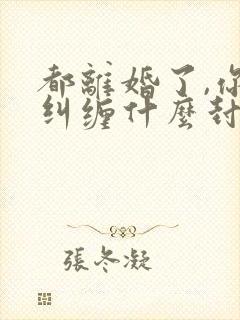 都離婚了,你
纠缠什麼封
張冬凝